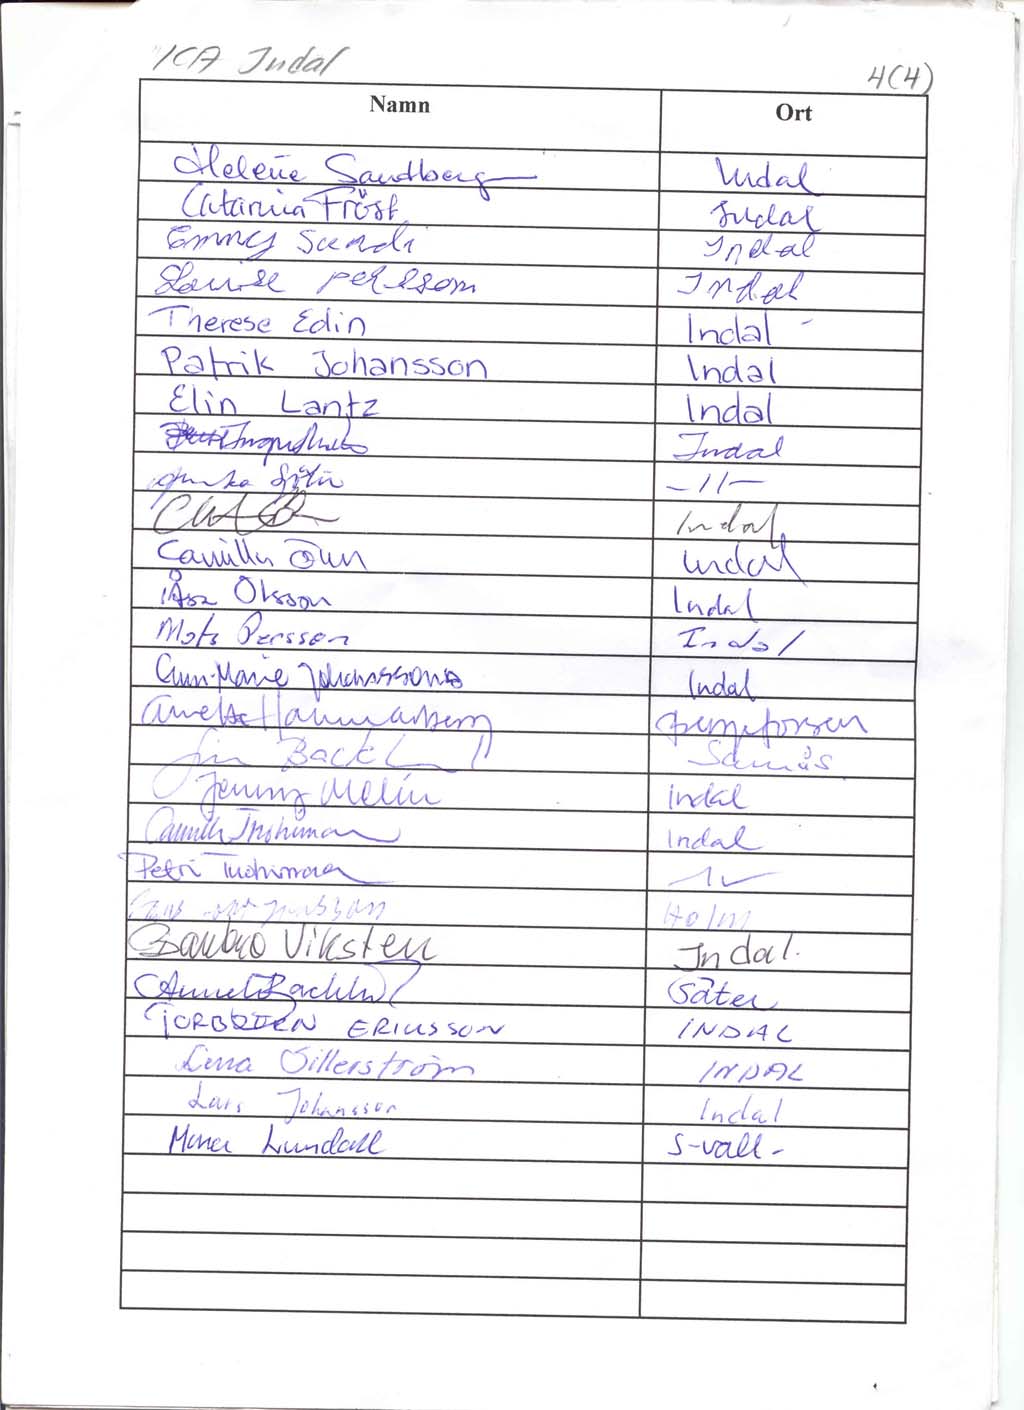 ICA Indal
4(4)
Namn Ort
Helene Sandberg Indal
Catarina Fröst Indal
Emmy Sundi Indal
Louise Persson Indal
Therese Edin Indal
Patrik Johansson Indal
Elin Lantz Indal
Indal
-11-
Indal
Camilla Indal
Åsa Olsson Indal
Mats Persson Indal
Ann-Marie Johansson Indal
Hammarberg
Backlund
Jenny Melin Indal
Camilla Indal
Petri
Holm
Barbro Viksten Indal.
Säter
TORBJÖRN ERICSSON INDAL
Lena Sillerström INDAL
Lars Johansson Indal
Mona Lundall S-vall-